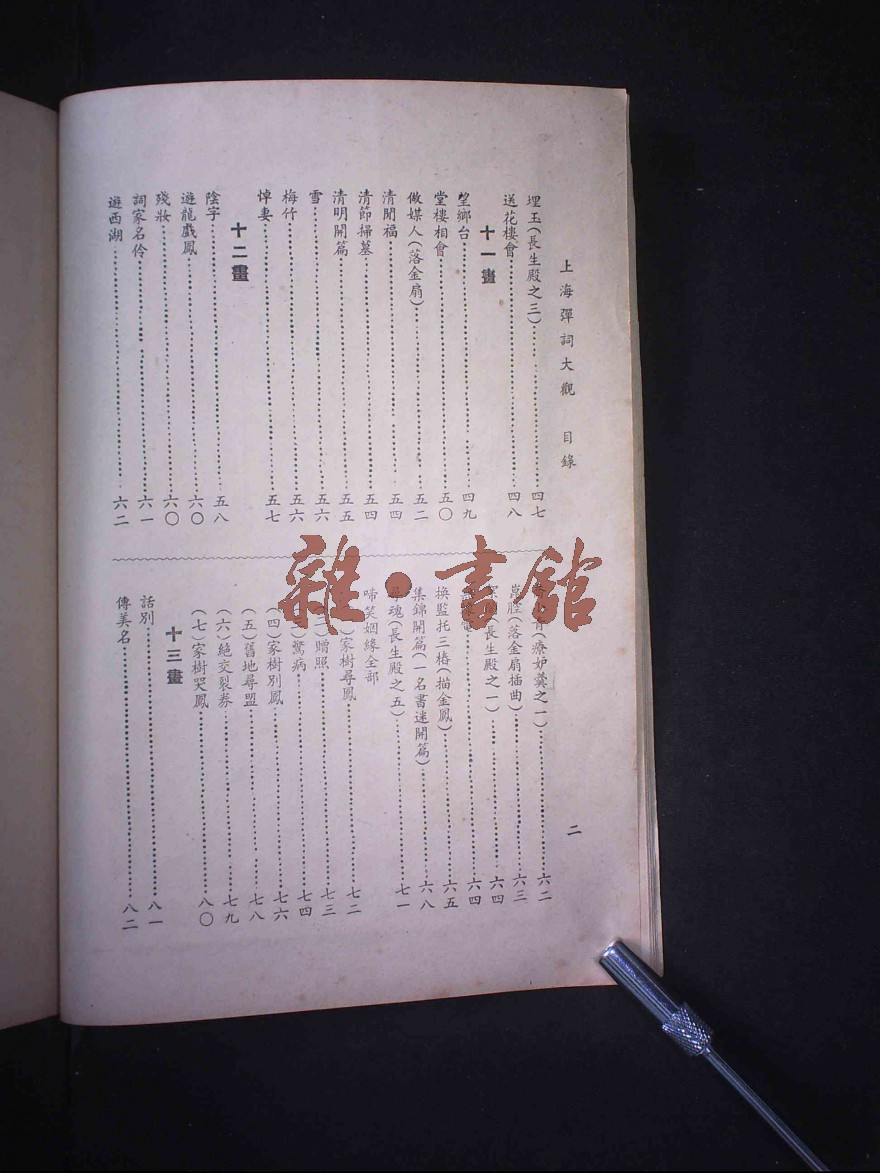 上海彈詞大觀 目錄
二
埋玉(長生殿之三)……四七
送花樓會……四八
十一畫
望鄉台……四九
堂樓相會……五〇
做媒人(落金扇)……五二
清閒福……五四
清節掃墓……五四
清明開篇……五五
雪……五六
梅竹……五六
悼妻……五七
十二畫
陰字……五八
遊龍戲鳳……六〇
殘妝……六〇
詞家名伶……六一
遊西湖……六二
(療妒羹之一)……六二
嵩腔(落金扇插曲)……六三
(長生殿之一)……六四
……六四
換監托三樁(描金鳳)……六五
集錦開篇(一名書迷開篇)……六八
尋魂(長生殿之五)……七一
啼笑姻緣全部
家樹尋鳳……七二
(二)贈照……七三
驚病……七四
(四)家樹別鳳……七六
(五)舊地尋盟……七八
(六)絕交裂券……七九
(七)家樹哭鳳……八〇
十三畫
話別……八一
傳美名……八二
雜·書館